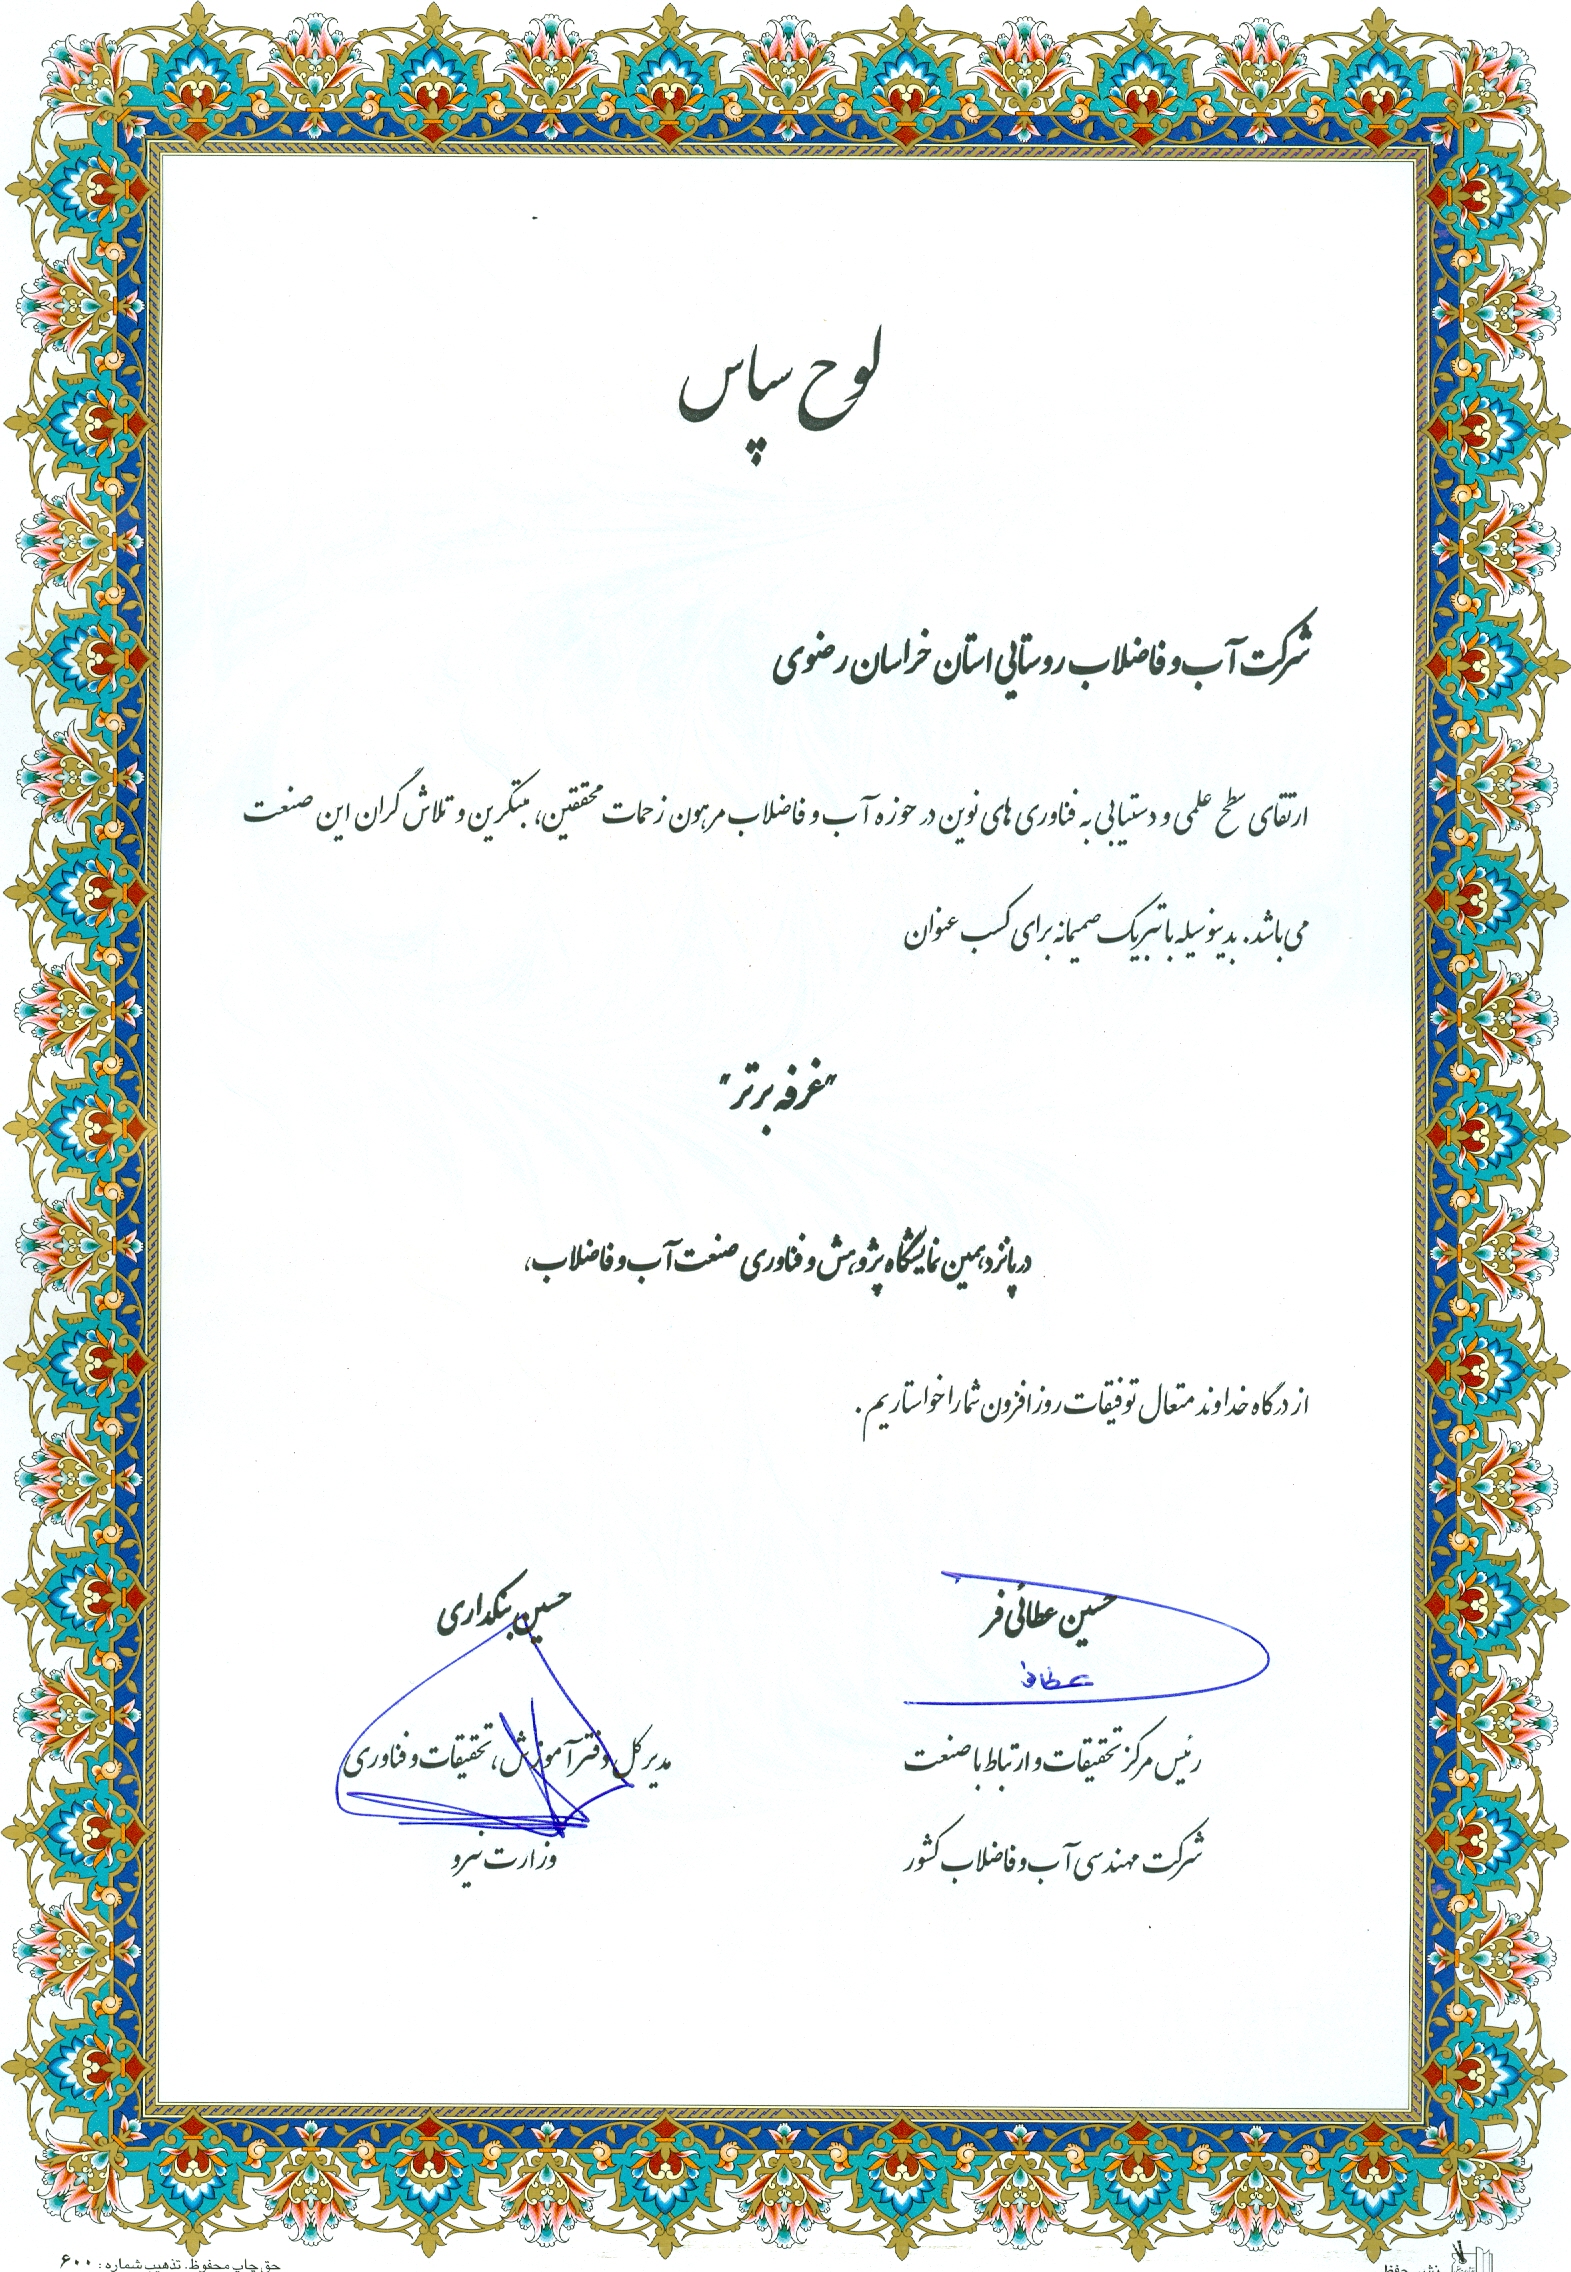 لوح سپاس
شرکت آب و فاضلاب روستایی استان خراسان رضوی
ارتقای سطح علمی و دستیابی به فناوری های نوین در حوزه آب و فاضلاب مرهون زحمات محققین، مبتکرین و تلاش گران این صنعت
می باشد. بدینوسیله با تبریک صمیمانه برای کسب عنوان
"غرفه برتر"
در پانزدهمین نمایشگاه پژوهش و فناوری صنعت آب و فاضلاب،
از درگاه خداوند متعال توفیقات روز افزون شما را خواستاریم.
حسین عطائی فر
رئیس مرکز تحقیقات و ارتباط با صنعت
شرکت مهندسی آب و فاضلاب کشور
حسین بنکداری
مدیر کل دفتر آموزش، تحقیقات و فناوری
وزارت نیرو
حق چاپ محفوظ. تذهیب شماره : ۶۰۰